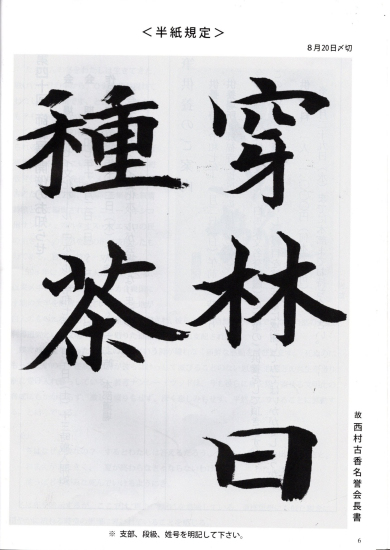 ＜半紙規定＞
８月20日〆切
穿林日
種茶
故 西村古香名誉会長書
※ 支部、段級、姓号を明記して下さい。
6